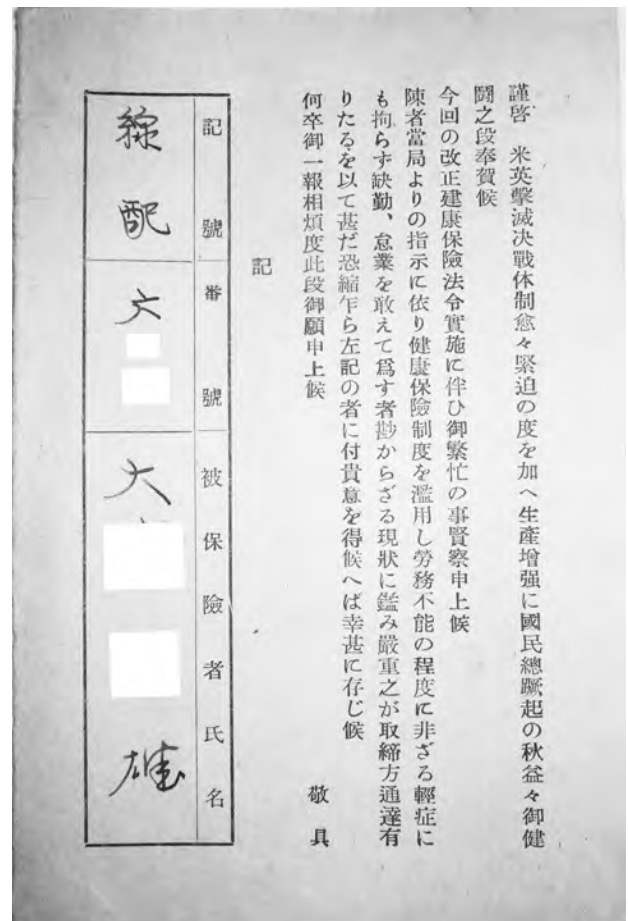 謹啓　米英擊滅决戰休制愈々緊迫の度を加へ生產增强に國民總蹶起の秋益々御健
鬪之段奉賀候
今回の改正建康保險法令實施に伴ひ御繁忙の事賢察申上候
陳者當局よりの指示に依り健康保險制度を濫用し勞務不能の程度に非ざる輕症に
も拘らず缺勤、怠業を敢えて爲す者尠からざる現狀に鑑み嚴重之が取締方通達有
りたるを以て甚だ恐縮乍ら左記の者に付貴意を得候へば幸甚に存じ候
何卒御一報相煩度此段御願申上候
敬具
記
記號
番號
被保險者氏名
配
六
大
雄